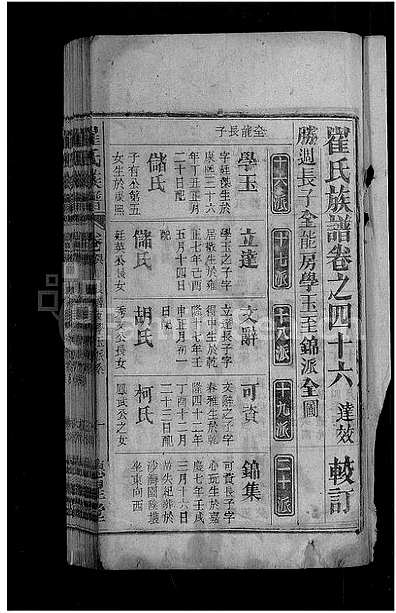 翟氏族譜卷之四十六 達效 較訂
勝週長子全能房學玉至錦派全圖
十六派
十七派
十八派
十九派
二十派
全龍長子
學玉
字廷藻生於
康熙三十六
年丁丑正月
二十日配
儲氏
子有公第五
女生於康熙
立達
學玉之子字
居敬生於雍
正七年己酉
五月十四日
配
儲氏
廷英公長女
文辭
立達長子字
得中生於乾
隆十七年壬
申正月初一
日配
胡氏
秀友公長女
可資
文辭之子字
春雅生於乾
隆四十二年
丁酉十二月
二十三日配
柯氏
鳳武公之女
錦集
可資長子字
心玩生於嘉
慶七年壬戌
三月十六日
坐東向西